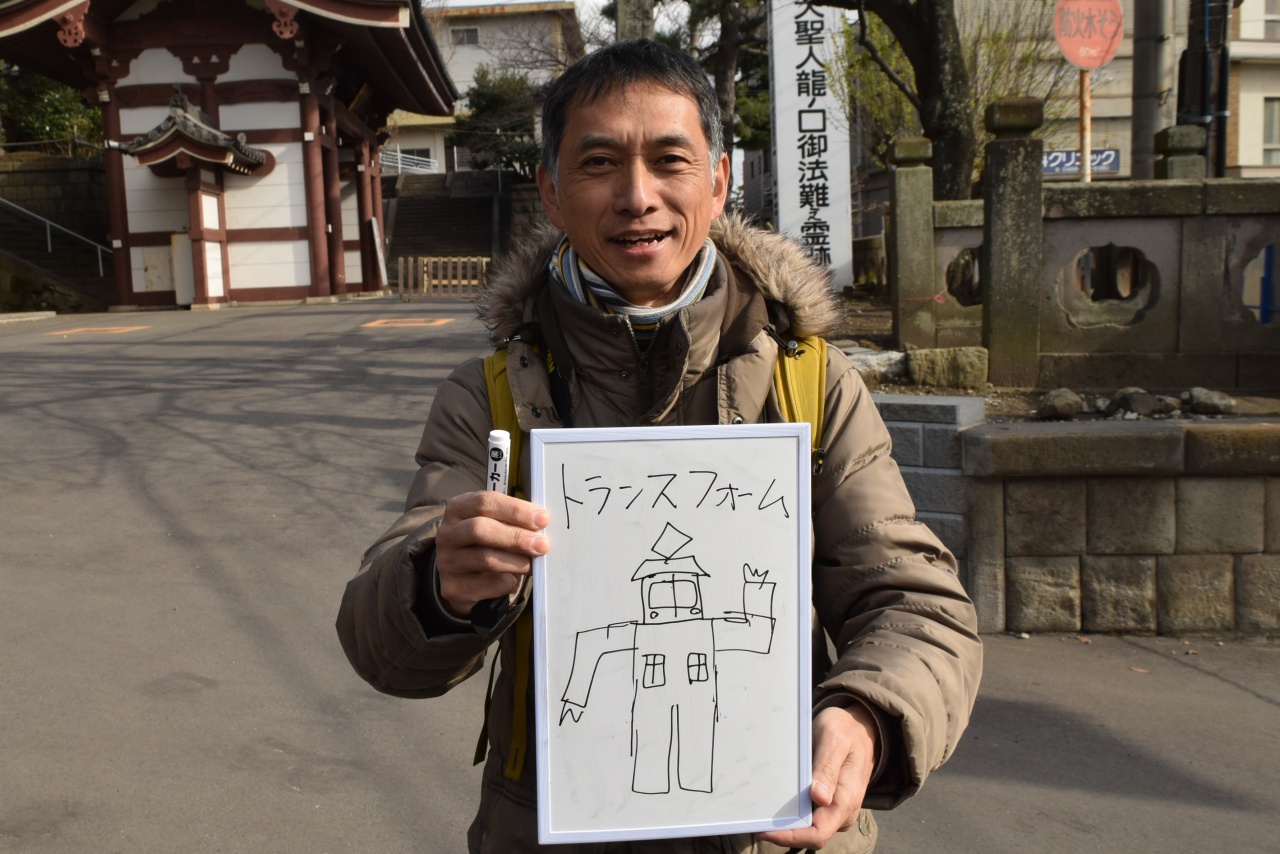 大聖人龍ノ口御法難之霊跡
防火水そう
60㎥
クリニック
マーカー
トランスフォーム